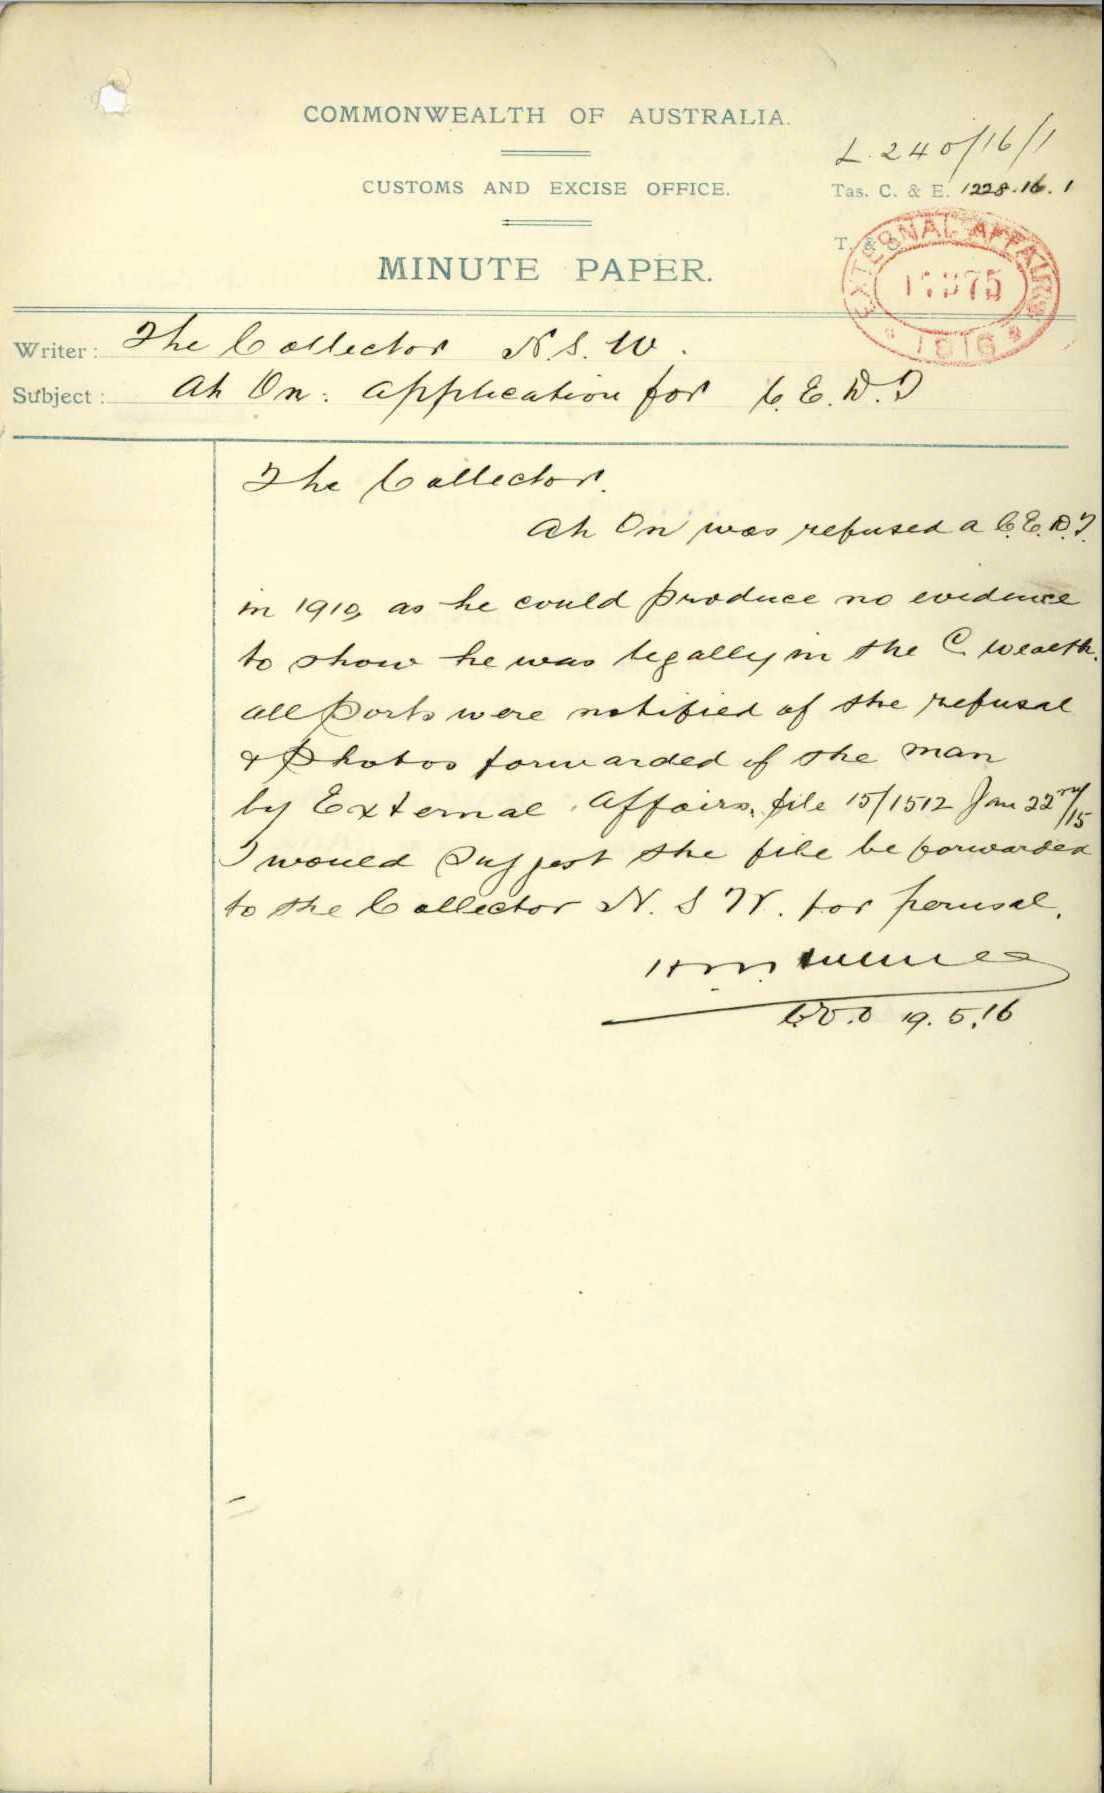 COMMONWEALTH OF AUSTRALIA.
L. 240/16/1
CUSTOMS AND EXCISE OFFICE.
Tas. C. & E. 1228.16.1
T. &
EXTERNAL AFFAIRS
1916
MINUTE PAPER.
Writer: The Collector N.S.W.
Subject: Ah On: application for C.E.D.T
The Collector.
Ah On was refused a C.E.D.T.
in 1910, as he could produce no evidence
to show he was legally in the C.wealth.
all Ports were notified of the refusal
& Photos forwarded of the man
by External Affairs, file 15/1512 Jan 22nd/15
I would suggest the file be forwarded
to the Collector N.S.W. for perusal.
19.5.16